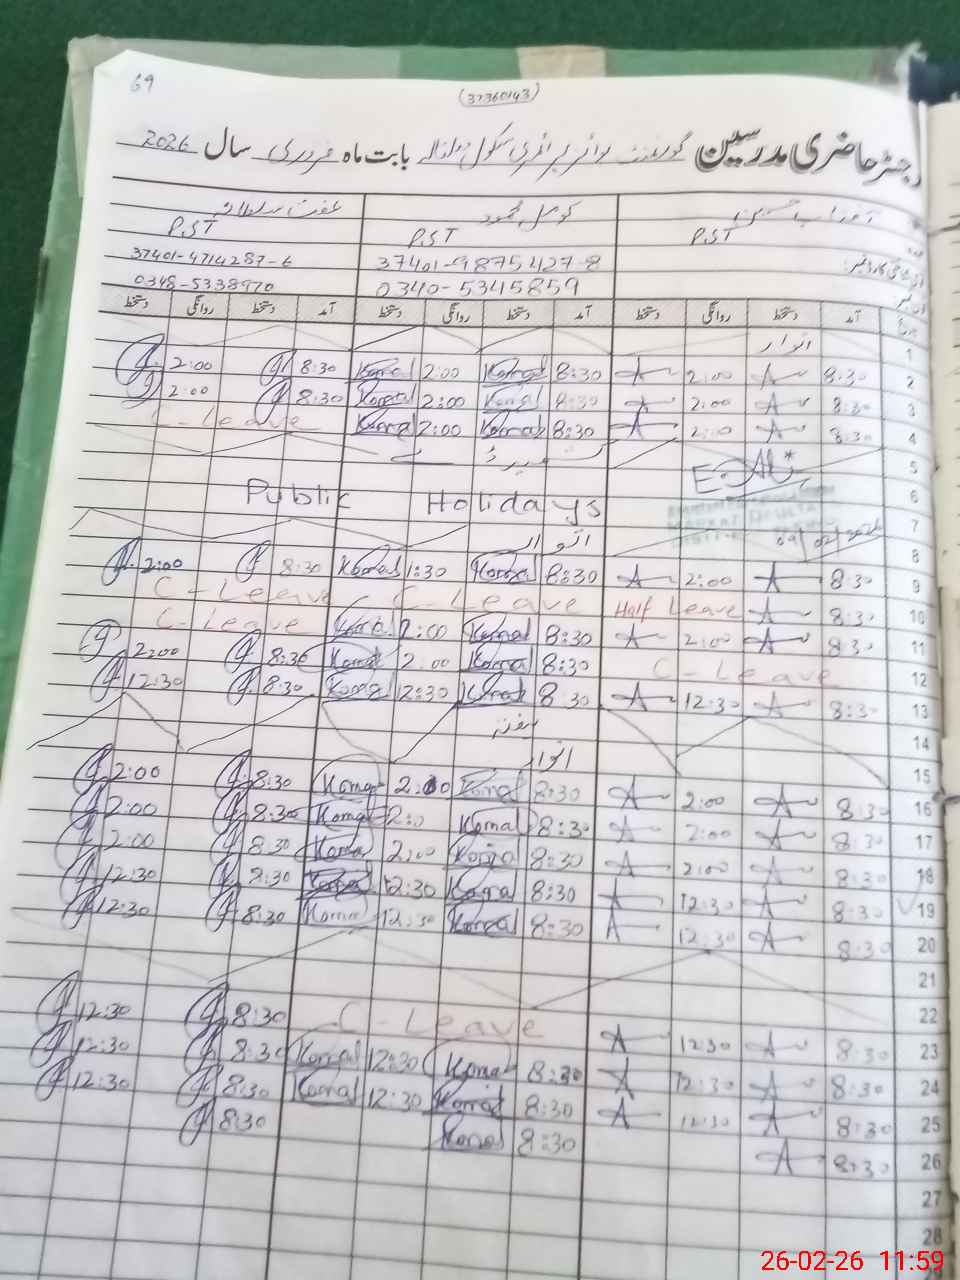 69
(37360143)
رجسٹر حاضری مدرسین گورنمنٹ بوائز پرائمری سکول بابت ماہ فروری سال 2026
کومل محمود
P.ST P.ST P.ST
37401-9875427-8 37401-4714287-6
0340-5345859 0348-5338970
تاریخ آمد دستخط روانگی دستخط آمد دستخط روانگی دستخط آمد دستخط روانگی دستخط
1 اتوار
2 8:30 A 2:00 A 8:30 Komal 2:00 Komal 8:30 2:00
3 8:30 A 2:00 A 8:30 Komal 2:00 Komal 8:30 2:00
4 8:30 A 2:00 A 8:30 Komal 2:00 Komal C-Leave
5 کشمیر ڈے
6 Public Holidays
7
09/02/2026
8 اتوار
9 8:30 A 2:00 A 8:30 Komal 1:30 Komal 8:30 2:00
10 8:30 A Half Leave C-Leave C-Leave
11 8:30 A 2:00 A 8:30 Komal 2:00 Komal C-Leave
12 C-Leave 8:30 Komal 2:00 Komal 8:30 2:00
13 8:30 A 12:30 A 8:30 Komal 12:30 Komal 8:30 12:30
14 ہفتہ
15 اتوار
16 8:30 A 2:00 A 8:30 Komal 2:00 Komal 8:30 2:00
17 8:30 A 2:00 A 8:30 Komal 2:0 Komal 8:30 2:00
18 8:30 A 2:00 A 8:30 Komal 2:00 Komal 8:30 2:00
19 8:30 A 12:30 A 8:30 Komal 12:30 Komal 8:30 12:30
20 8:30 A 12:30 A 8:30 Komal 12:30 Komal 8:30 12:30
21
22
23 8:30 A 12:30 A C-Leave 8:30 12:30
24 8:30 A 12:30 A 8:30 Komal 12:30 Komal 8:30 12:30
25 8:30 A 12:30 A 8:30 Komal 12:30 Komal 8:30 12:30
26 8:30 A 8:30 Komal 8:30
27
28
26-02-26 11:59